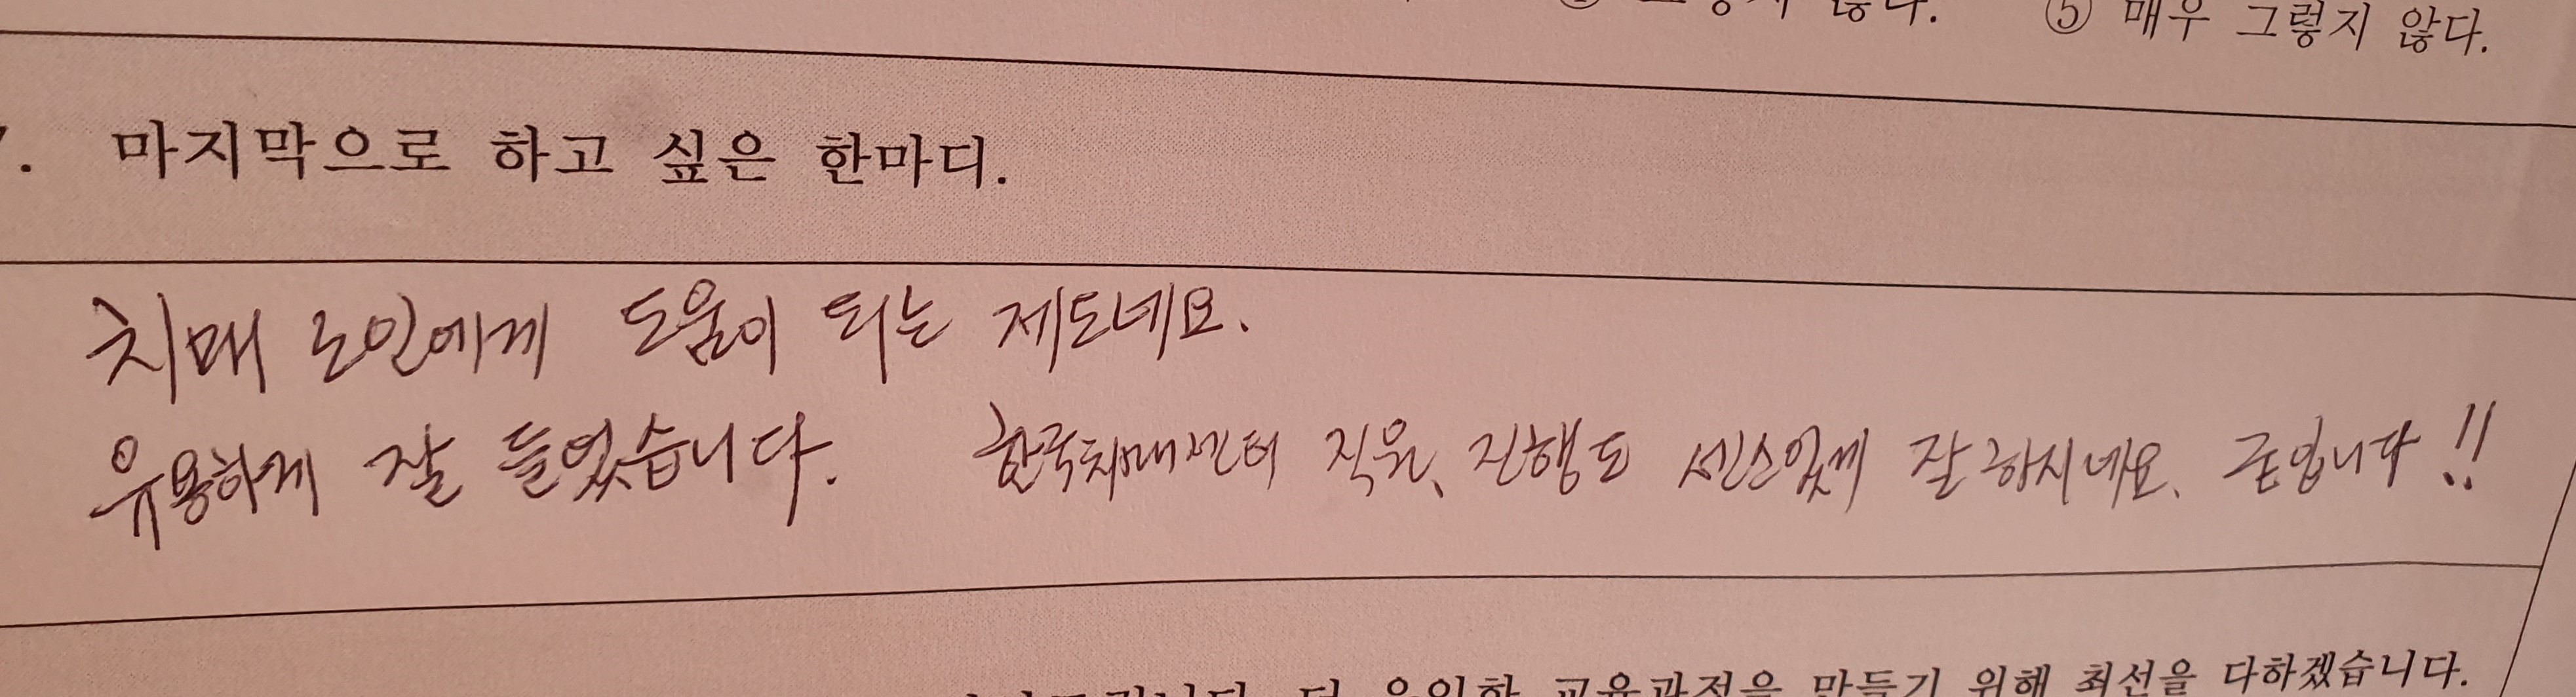 ⑤ 매우 그렇지 않다.
. 마지막으로 하고 싶은 한마디.
치매 노인에게 도움이 되는 제도네요.
유용하게 잘 들었습니다. 한국치매센터 직원, 진행도 센스있게 잘 하시네요. 굳입니다!!
교육과정을 만들기 위해 최선을 다하겠습니다.